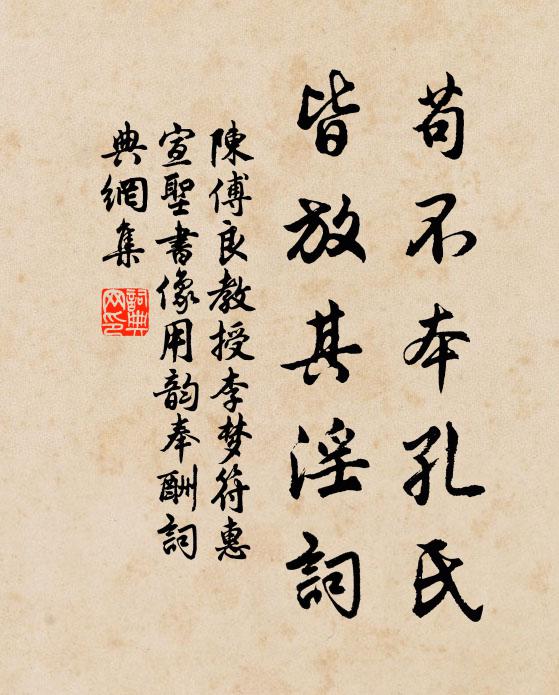 苟不本孔氏
皆放其淫詞
陳傅良教授李梦符惠
宣聖書像用韵奉酬詞
典網集
詞典
网印